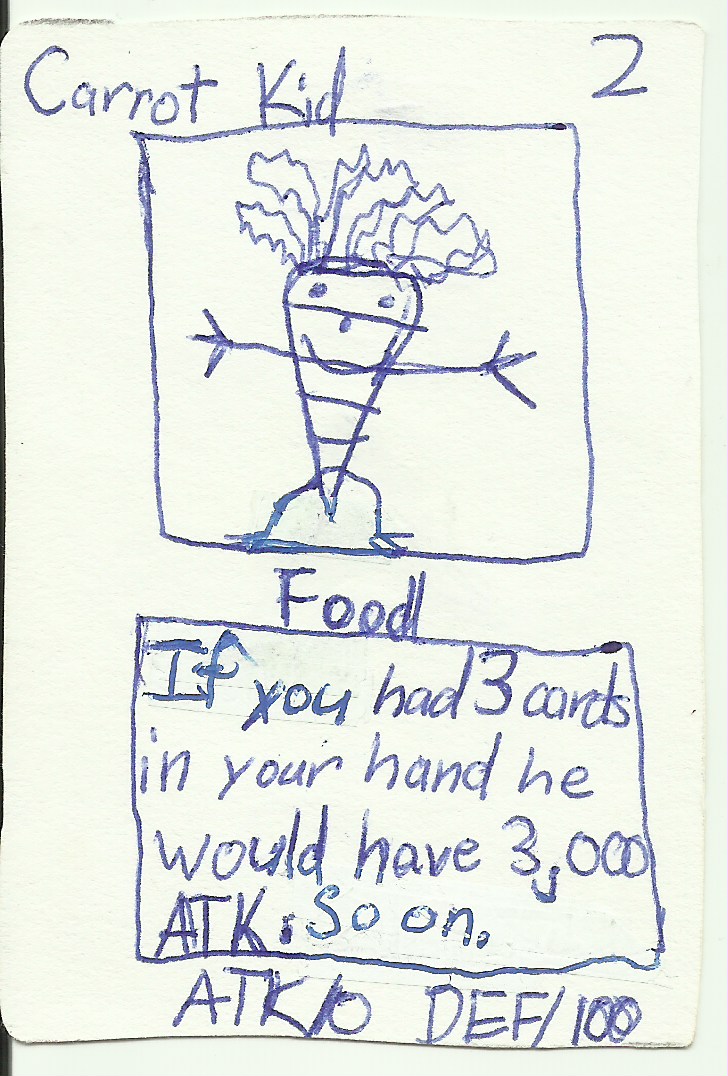 Carrot Kid 2
Food
If you had 3 cards
in your hand he
would have 3,000
ATK. So on.
ATK/0 DEF/100